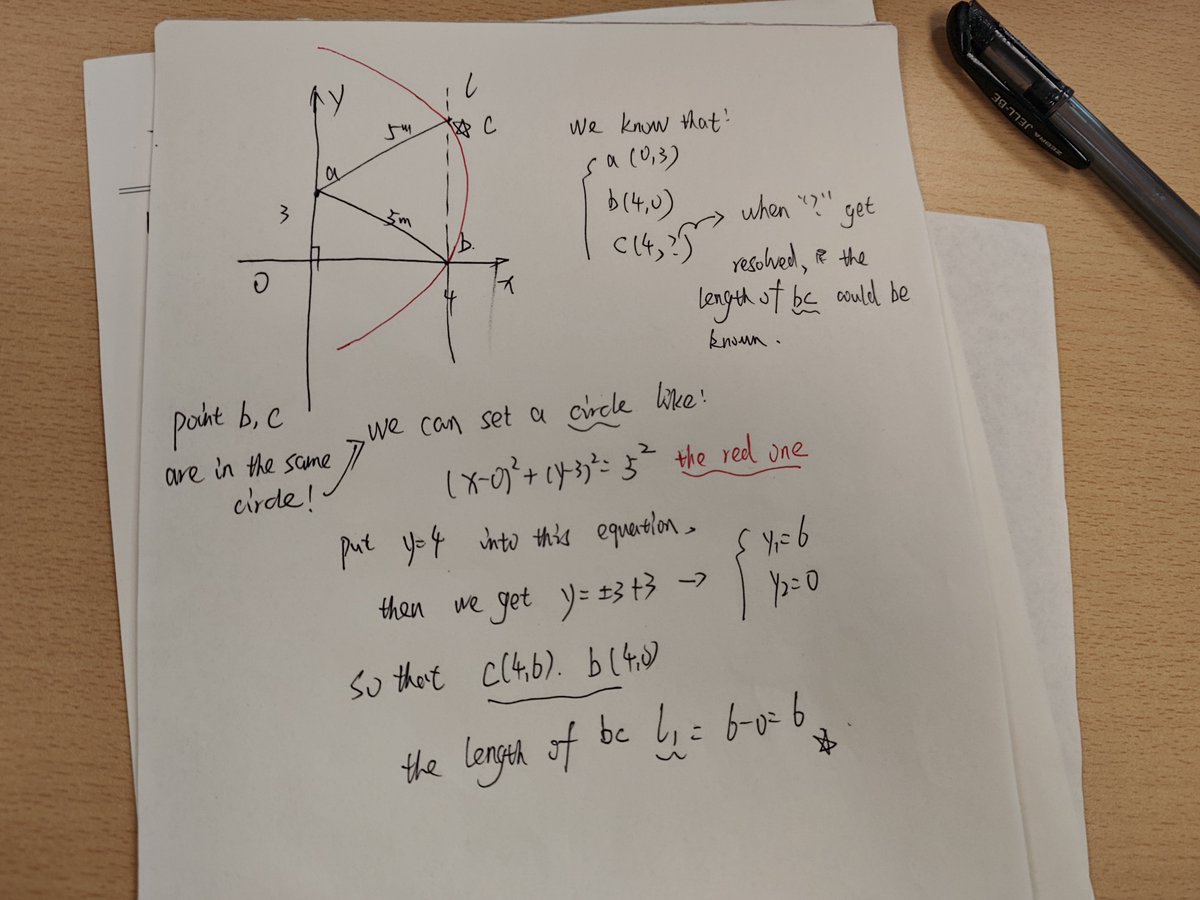 y
l
5m
☆ c
a
3
5m
b.
0
4
x
we know that:
a (0,3)
b(4,0)
c(4,?) → when "?" get
resolved, the
length of bc could be
known.
point b, c
are in the same
circle!
we can set a circle like:
(x-0)²+(y-3)²=5² the red one
put y=4 into this equation,
then we get y=±3+3 → y₁=6
y₂=0
so that c(4,6). b(4,0)
the length of bc l₁ = 6-0=6 ☆.
ZEBRA JELL-BE